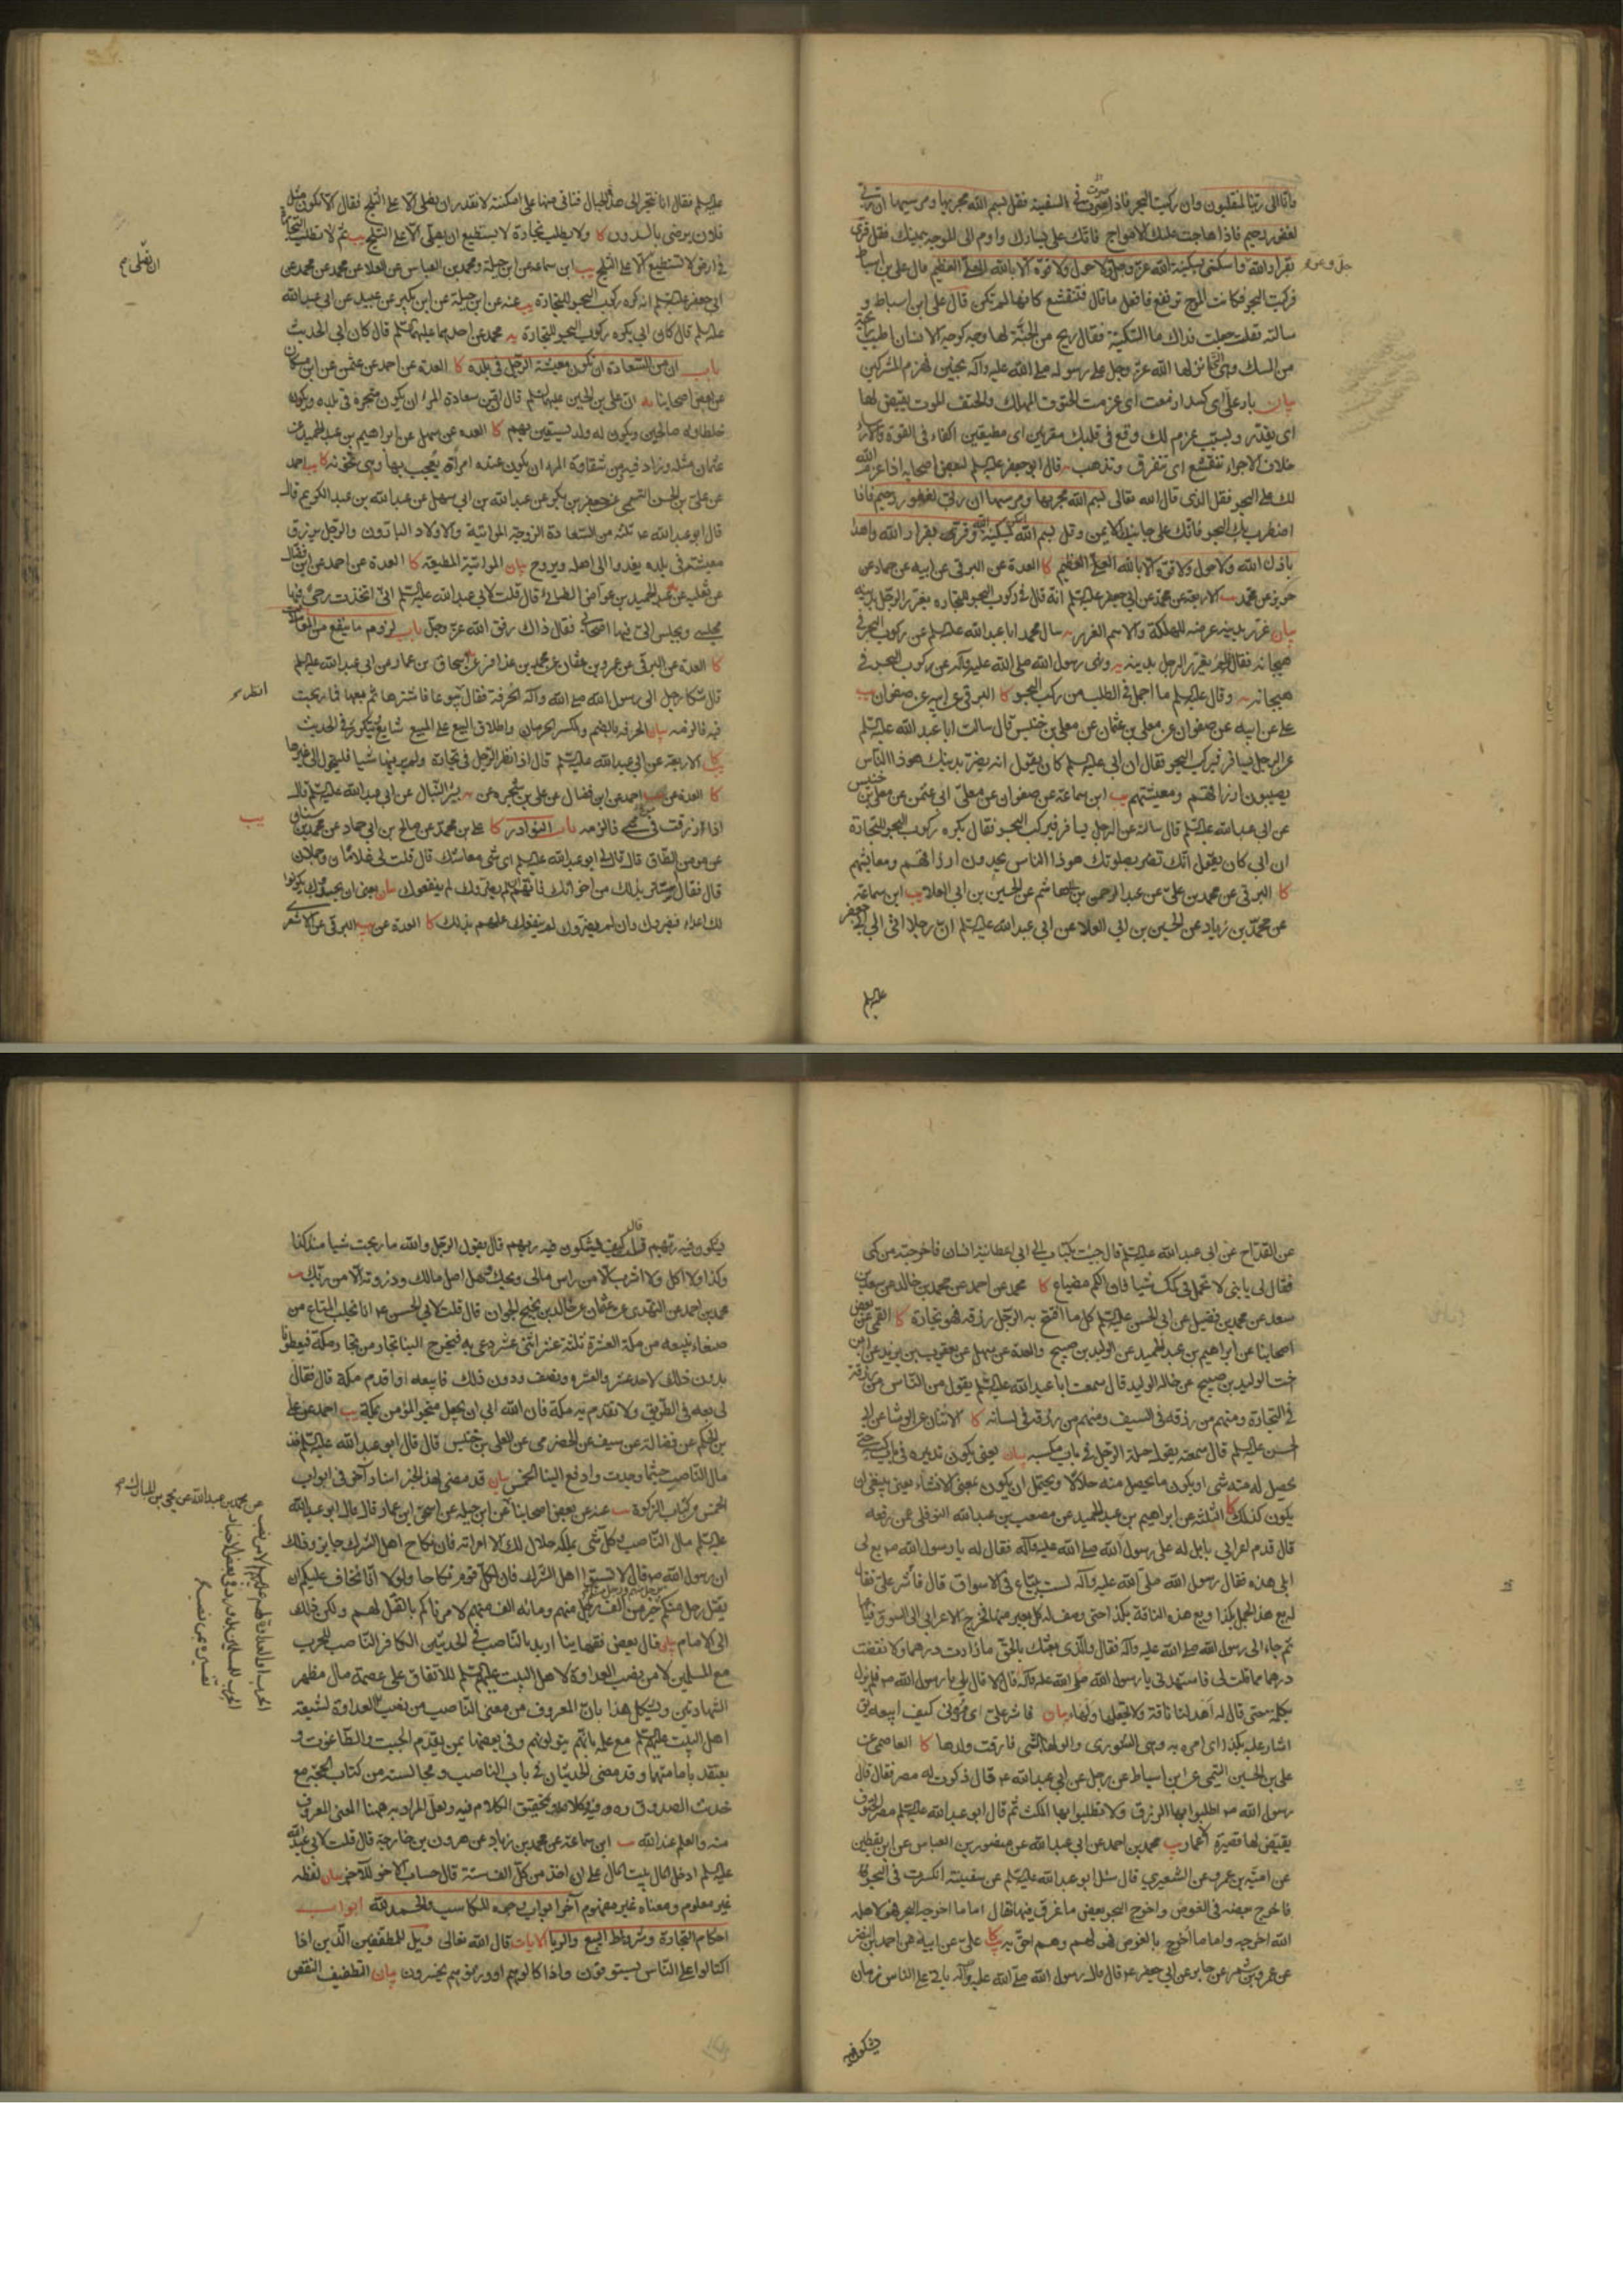 وانا الى ربنا لمنقلبون وان ركبت البحر فاذا صرت في السفينة فقل بسم الله مجريها ومرسيها ان ربي
لغفور رحيم فاذا هاجت عليك الامواج فاتك على يسارك واوم الى الموجة بيمينك وقل قري
بقرار الله واسكني بسكينة الله عز وجل ولا حول ولا قوة الا بالله العلي العظيم قال علي بن اسباط
جل وعز
فركبت البحر فكانت الموج ترتفع فاقول ما قال فتتقشع كانها لم تكن قال علي بن اسباط و
سالته فقلت جعلت فداك ما السكينة فقال ريح من الجنة لها وجه كوجه الانسان اطيب رائحة
من المسك وهي التي انزلها الله عز وجل على رسول الله صلى الله عليه وآله بحنين فهزم المشركين
بيان
اي يقدر ويسبب عزم لك وقع في قلبك مقرنين اي مطيقين اكفاء في القوة
خلاف الاجواء تتقشع اي تتفرق وتذهب يه قال ابو جعفر عليه السلم لبعض اصحابه اذا عزم الله
لك على البحر فقل الذي قال الله تعالى بسم الله مجريها ومرسيها ان ربي لغفور رحيم فاذا
اضطرب بك البحر فاتك على جانبك الايمن وقل بسم الله اسكن بسكينة الله وقر بقرار الله واهدا
باذن الله ولا حول ولا قوة الا بالله العلي العظيم كا العدة عن البرقي عن ابيه عن حماد عن
حريز عن محمد يب الاربعة عن محمد عن ابي جعفر عليه السلم انه قال في ركوب البحر للتجارة يغرر الرجل بدينه
بيان غرر بدينه عرضه للهلكة والاسم الغرر يه سال محمد ابا عبد الله عليه السلم عن ركوب البحر في
هيجانه فقال ولم يغرر الرجل بدينه يه ونهى رسول الله صلى الله عليه وآله عن ركوب البحر في
هيجانه يه وقال عليه السلم ما اجمل في الطلب من ركب البحر كا البرقي عن ابيه عن صفوان يب
علي عن ابيه عن صفوان عن معلى بن عثمان عن معلى بن خنيس قال سالت ابا عبد الله عليه السلم
عن الرجل يسافر فيركب البحر فقال ان ابي عليه السلم كان يقول انه يضر بدينك هوذا الناس
يصيبون ارزاقهم ومعيشتهم يب ابن سماعة عن صفوان عن معلى ابي عثمن عن معلى بن خنيس
عن ابي عبد الله عليه السلم قال سالته عن الرجل يسافر فيركب البحر فقال يكره ركوب البحر للتجارة
ان ابي كان يقول انك تضر بصلوتك هوذا الناس يجدون ارزاقهم ومعايشهم
كا البرقي عن محمد بن علي عن عبد الرحمن بن ابي هاشم عن الحسين بن ابي العلاء يب ابن سماعة
عن محمد بن زياد عن الحسين بن ابي العلا عن ابي عبد الله عليه السلم ان رجلا اتى ابي جعفر
عليه السلم
عليه السلم فقال انا نتجر الى هذه الجبال فناتي منها على امكنة لا نقدر ان نصلي الا على الثلج فقال الا تكون مثل
فلان يرضى بالدون كا ولا يطلب تجارة لا يستطيع ان يصلي الا على الثلج يب ثم لا تطلب التجارة
في ارض لا تستطيع الا على الثلج يب ابن سماعة عن ابن جبلة ومحمد بن العباس عن العلا عن محمد عن
ان تصلي
ابي جعفر عليه السلم انه كره ركوب البحر للتجارة يب عنه عن ابن جبلة عن ابن بكير عن عبيد عن ابي عبد الله
عليه السلم قال كان ابي يكره ركوب البحر للتجارة يه محمد عن احدهما عليهما السلم قال كان ابي الحديث
باب ان من السعادة ان تكون معيشة الرجل في بلده كا العدة عن احمد عن عثمن عن ابن مسكان
عن بعض اصحابنا يه ان علي بن الحسين عليهما السلم قال ان من سعادة المرء ان يكون متجره في بلده ويكون
خلطاؤه صالحين ويكون له ولد يستعين بهم كا العدة عن سهل عن ابراهيم بن عبد الحميد عن
عثمان مثله وزاد فيه ومن شقاوة المرء ان يكون عنده امرأة يعجب بها وهي تخونه كا يب احمد
عن علي بن الحسن التيمي عن جعفر بن بكر عن عبد الله بن ابي سهل عن عبد الله بن عبد الكريم قال
قال ابو عبد الله ع ثلثة من السعادة الزوجة المواتية والاولاد البارون والرجل يرزق
معيشته في بلده يغدو الى اهله ويروح بيان المواتية المطيعة كا العدة عن احمد عن ابن فضال
عن ثعلبة عن عبد الحميد بن عواض الطائي قال قلت لابي عبد الله عليه السلم اني اتخذت رحى فيها
مجلسي ويجلس الي فيها اصحابي فقال ذاك رفق الله عز وجل باب لزوم ما ينفع من المعاملات
كا العدة عن البرقي عن عمرو بن عثمان عن محمد بن عذافر عن اسحاق بن عمار عن ابي عبد الله عليه السلم
قال شكا رجل الى رسول الله صلى الله وآله الحرفة فقال انظر بيوعا فاشترها ثم بعها فما ربحت
فيه فالزمه بيان الحرفة بالضم والكسر الحرمان واطلاق البيع على المبيع شايع يتكرر في الحديث
كا الاربعة عن ابي عبد الله عليه السلم قال اذا نظر الرجل في تجارة ولم ير فيها شيا فليتحول الى غيرها
كا العدة عن احمد عن ابن فضال عن علي بن شجرة عن بشر النبال عن ابي عبد الله عليه السلم قال
اذا رزقت في شيء فالزمه باب النوادر كا علي بن محمد عن صالح بن ابي حماد عن محمد بن سنان
عن مومن الطاق قال قال لي ابو عبد الله عليه السلم اي شيء معاشك قال قلت لي غلامان وجملان
قال فقال استتر بذلك من اخوانك فانهم ان لم يضروك لم ينفعوك بيان يعني ان يحسدوك يكونوا
لك اعداء فيضروك وان لم يضروك لم ينفعوك علمهم بذلك كا العدة عن البرقي عن الاشعري
عن القداح عن ابي عبد الله عليه السلم قال جئت بكتاب الى ابي اعطانيه انسان فاخرجته من كمي
فقال لي يا بني لا تحمل في كمك شيا فان الكم مضياع كا محمد عن احمد عن محمد بن خالد عن سعد بن
سعد عن محمد بن فضيل عن ابي الحسن عليه السلم كل ما افتتح به الرجل رزقه فهو تجارة كا القمي عن بعض
اصحابنا عن ابراهيم بن عبد الحميد عن الوليد بن صبيح والعدة عن سهل عن يعقوب بن يزيد عن ابن
اخت الوليد بن صبيح عن خاله الوليد قال سمعت ابا عبد الله عليه السلم يقول من الناس من رزقه
في التجارة ومنهم من رزقه في السيف ومنهم من رزقه في لسانه كا الاثنان عن الوشا عن ابي
الحسن عليه السلم قال سمعته يقول حيلة الرجل في باب مكسبه بيان يعني يكون تدبيره في باب كسبه حتى
يحصل له منه شيء او يكون ما يحصل منه حلالا ويحتمل ان يكون بمعنى الانشاء يعني ينبغي ان
يكون كذلك كا الثلثة عن ابراهيم بن عبد الحميد عن مصعب بن عبد الله النوفلي عمن رفعه
قال قدم اعرابي بابل له على رسول الله صلى الله عليه وآله فقال له يا رسول الله ص بع لي
ابلي هذه فقال رسول الله صلى الله عليه وآله لست ببياع في الاسواق قال فاشر علي فقال
له بع هذا الجمل بكذا وبع هذه الناقة بكذا حتى وصف له كل بعير منها فخرج الاعرابي الى السوق فباعها
ثم جاء الى رسول الله صلى الله عليه وآله فقال والذي بعثك بالحق ما زادت درهما ولا نقصت
درهما مما قلت لي فاستهدني يا رسول الله صلى الله عليه وآله قال لا قال بلى يا رسول الله ص فلم يزل
يكلمه حتى قال له اهد لنا ناقة ولا تجعلها ولهاء بيان فاشر علي اي مرني كيف ابيعه يق
اشار عليه بكذا اي امره به وهي الشورى والولهاء التي فارقت ولدها كا العاصمي عن
علي بن الحسين التيمي عن ابن اسباط عن رجل عن ابي عبد الله ع قال ذكرت له مصر فقال قال
رسول الله ص اطلبوا بها الرزق ولا تطلبوا بها المكث ثم قال ابو عبد الله عليه السلم مصر الحتوف
يقيض لها قصيرة الاعمار يب محمد بن احمد عن ابي عبد الله عن منصور بن العباس عن ابن يقطين
عن امية بن عمرو عن الشعيري قال سئل ابو عبد الله عليه السلم عن سفينة انكسرت في البحر
فاخرج بعضه في الغوص واخرج البحر بعض ما غرق فيها فقال اما ما اخرجه البحر فهو لاهله
الله اخرجه واما ما اخرج بالغوص فهو لهم وهم احق به كا علي عن ابيه عن احمد بن النضر
عن عمرو بن شمر عن جابر عن ابي جعفر ع قال قال رسول الله صلى الله عليه وآله ياتي على الناس زمان
يشكون فيه
يشكون فيه ربهم قلت كيف يشكون فيه ربهم قال يقول الرجل والله ما ربحت شيا منذ كذا
وكذا ولا اكل ولا اشرب الا من راس مالي ويحك وهل اصل مالك وذروته الا من ربك يب
محمد بن احمد عن النهدي عن عثمان عن خالد بن نجيح الجوان قال قلت لابي الحسن ع انا نجلب المتاع من
صنعاء نبيعه من مكة العشرة ثلثة عشر اثنى عشر ونجيء به فيخرج الينا تجار من تجار مكة فيعطونا
بدون ذلك الاحد عشر والعشرة ونصف ودون ذلك فابيعه او اقدم مكة قال فقال
لي بعه في الطريق ولا تقدم به مكة فان الله ابى ان يجعل متجر المؤمن بمكة يب احمد عن علي
بن الحكم عن فضالة عن سيف عن الحضرمي عن المعلى بن خنيس قال قال ابو عبد الله عليه السلم خذ
مال الناصب حيثما وجدت وادفع الينا الخمس بيان قد مضى لهذا الخبر اسناد آخر في ابواب
الخمس من كتاب الزكوة يب عنه عن بعض اصحابنا عن ابن جبلة عن اسحق بن عمار قال قال ابو عبد الله
عن محمد بن عبد الله عن يحيى بن المبارك
عليه السلم مال الناصب وكل شيء يملكه حلال لك الا امراته فان نكاح اهل الشرك جايز وذلك
ان رسول الله ص قال لا تسبوا اهل الشرك فان لكل قوم نكاحا ولولا انا نخاف عليكم ان
يقتل رجل منكم برجل منهم ورجل منكم خير من الف رجل منهم ومائة الف منهم لامرناكم بالقتل لهم ولكن ذلك
الى الامام بيان قال بعض فقهاءنا اريد بالناصب في الحديثين الكافر الناصب للحرب
مع المسلمين لا من نصب العداوة لاهل البيت عليهم السلم للاتفاق على عصمة مال مظهر
الشهادتين ويشكل هذا بان المعروف من معنى الناصب من نصب العداوة لشيعة
اهل البيت عليهم السلم مع علمه بانهم يتولونهم وفي بعضها بمن يقدم الجبت والطاغوت و
يعتقد بامامتهما وقد مضى الحديثان في باب الناصب ومجالسته من كتاب الحجة مع
حديث الصدوق ره وفيه كلام في تحقيق الكلام فيه ولعل المراد به هنا المعنى المعروف
منه والعلم عند الله يب ابن سماعة عن محمد بن زياد عن هرون بن خارجة قال قلت لابي عبد الله
عليه السلم ادخل المال بيت المال على ان اخذ من كل الف ستة قال حساب الاخر للآخر بيان لفظه
غير معلوم ومعناه غير مفهوم آخر ابواب وجوه المكاسب والحمد لله ابواب
احكام التجارة وشروط البيع والربا الآيات قال الله تعالى ويل للمطففين الذين اذا
اكتالوا على الناس يستوفون واذا كالوهم او وزنوهم يخسرون بيان التطفيف النقص